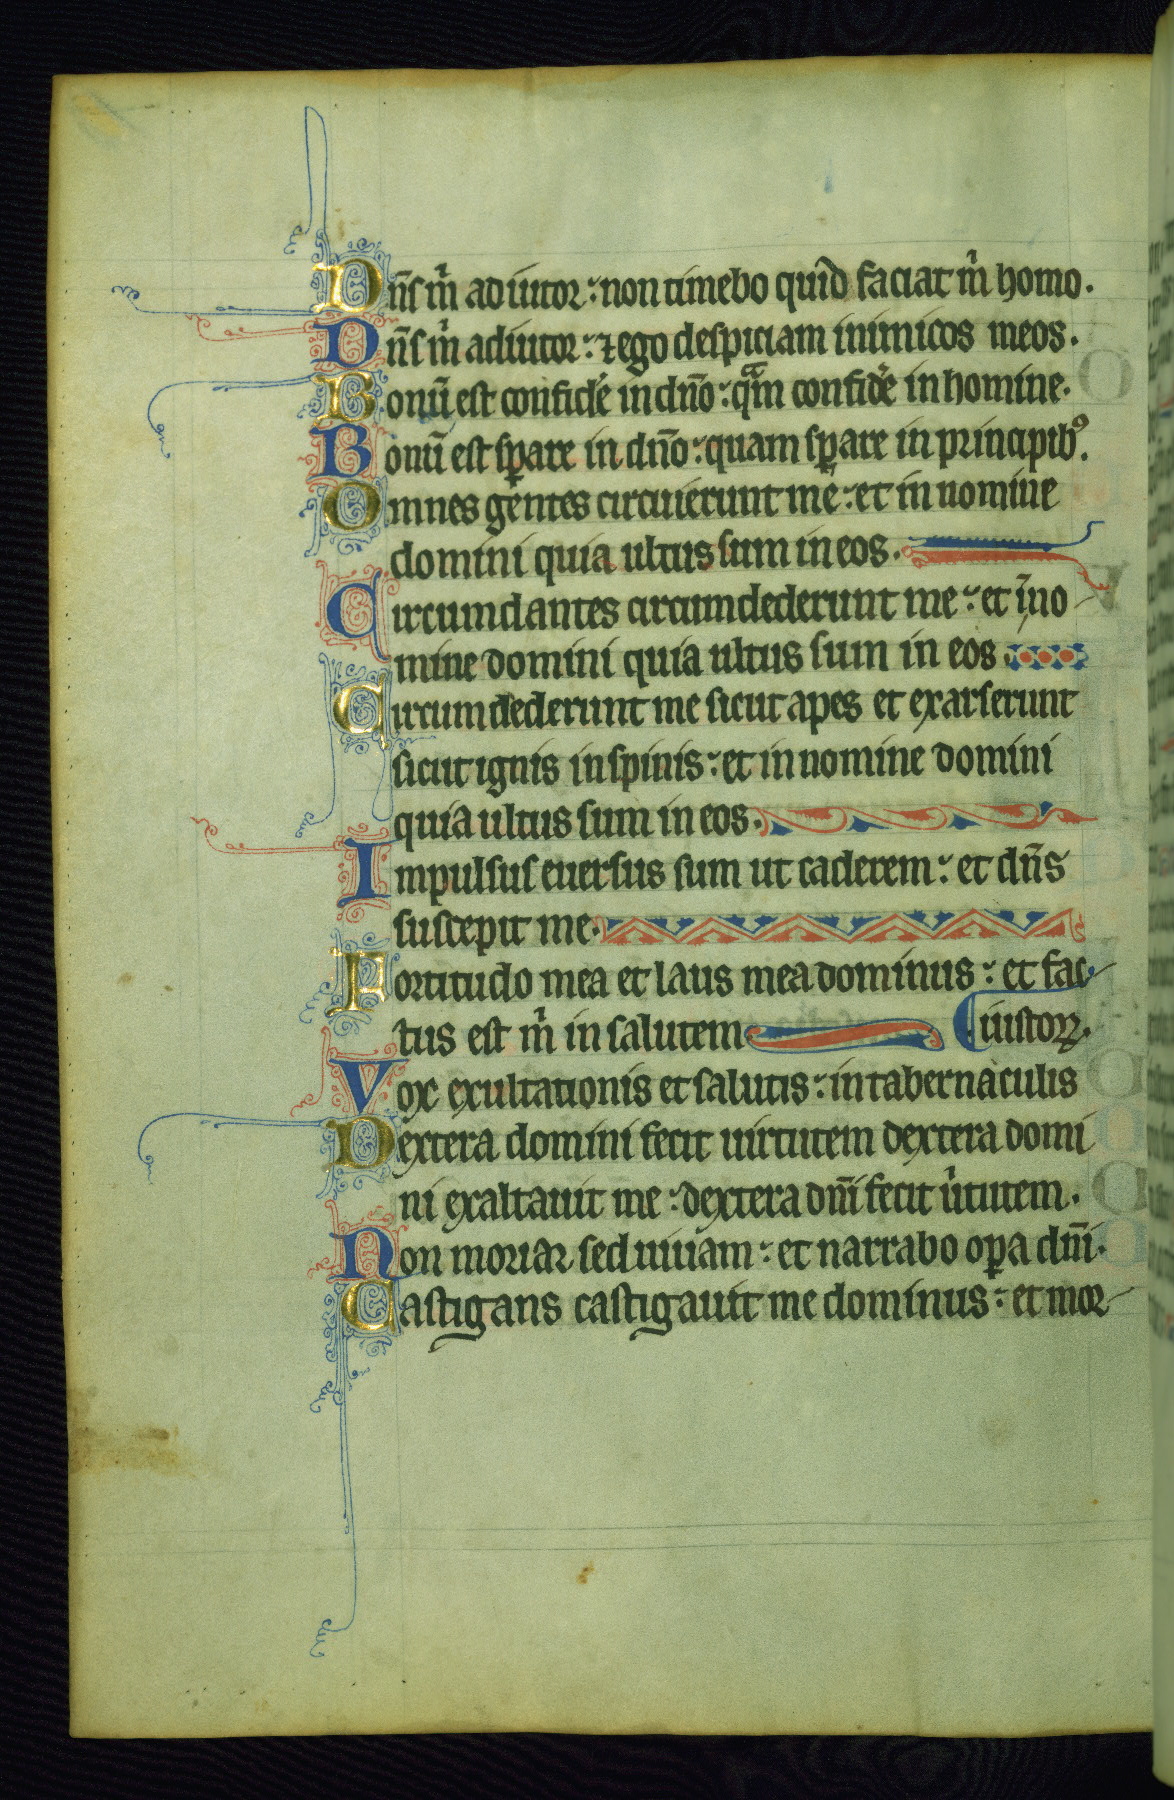 Dn̄s m̍ adiutor: non timebo quid faciat m̍ homo.
Dn̄s m̍ adiutor: ⁊ ego despiciam inimicos meos.
Bonū est confid̍e in dn̄o: qᵃm confid̍e in homine.
Bonū est sꝑare in dn̄o: quam sꝑare in principibꝰ.
Omnes gentes circuierunt me: et in nomine
domini quia ultus sum in eos.
Circumdantes circumdederunt me: et ī no
mine domini quia ultus sum in eos
Circumdederunt me sicut apes et exarserunt
sicut ignis in spinis: et in nomine domini
quia ultus sum in eos.
Impulsus euersus sum ut caderem: et dn̄s
suscepit me.
Fortitudo mea et laus mea dominus: et fac
tus est m̍ in salutem iustoꝝ.
Vox exultationis et salutis: in tabernaculis
Dextera domini fecit uirtutem dextera domi
ni exaltauit me: dextera dn̄i fecit u̍tutem.
Non moriar sed uiuam: et narrabo oꝑa dn̄i.
Castigans castigauit me dominus: et mor